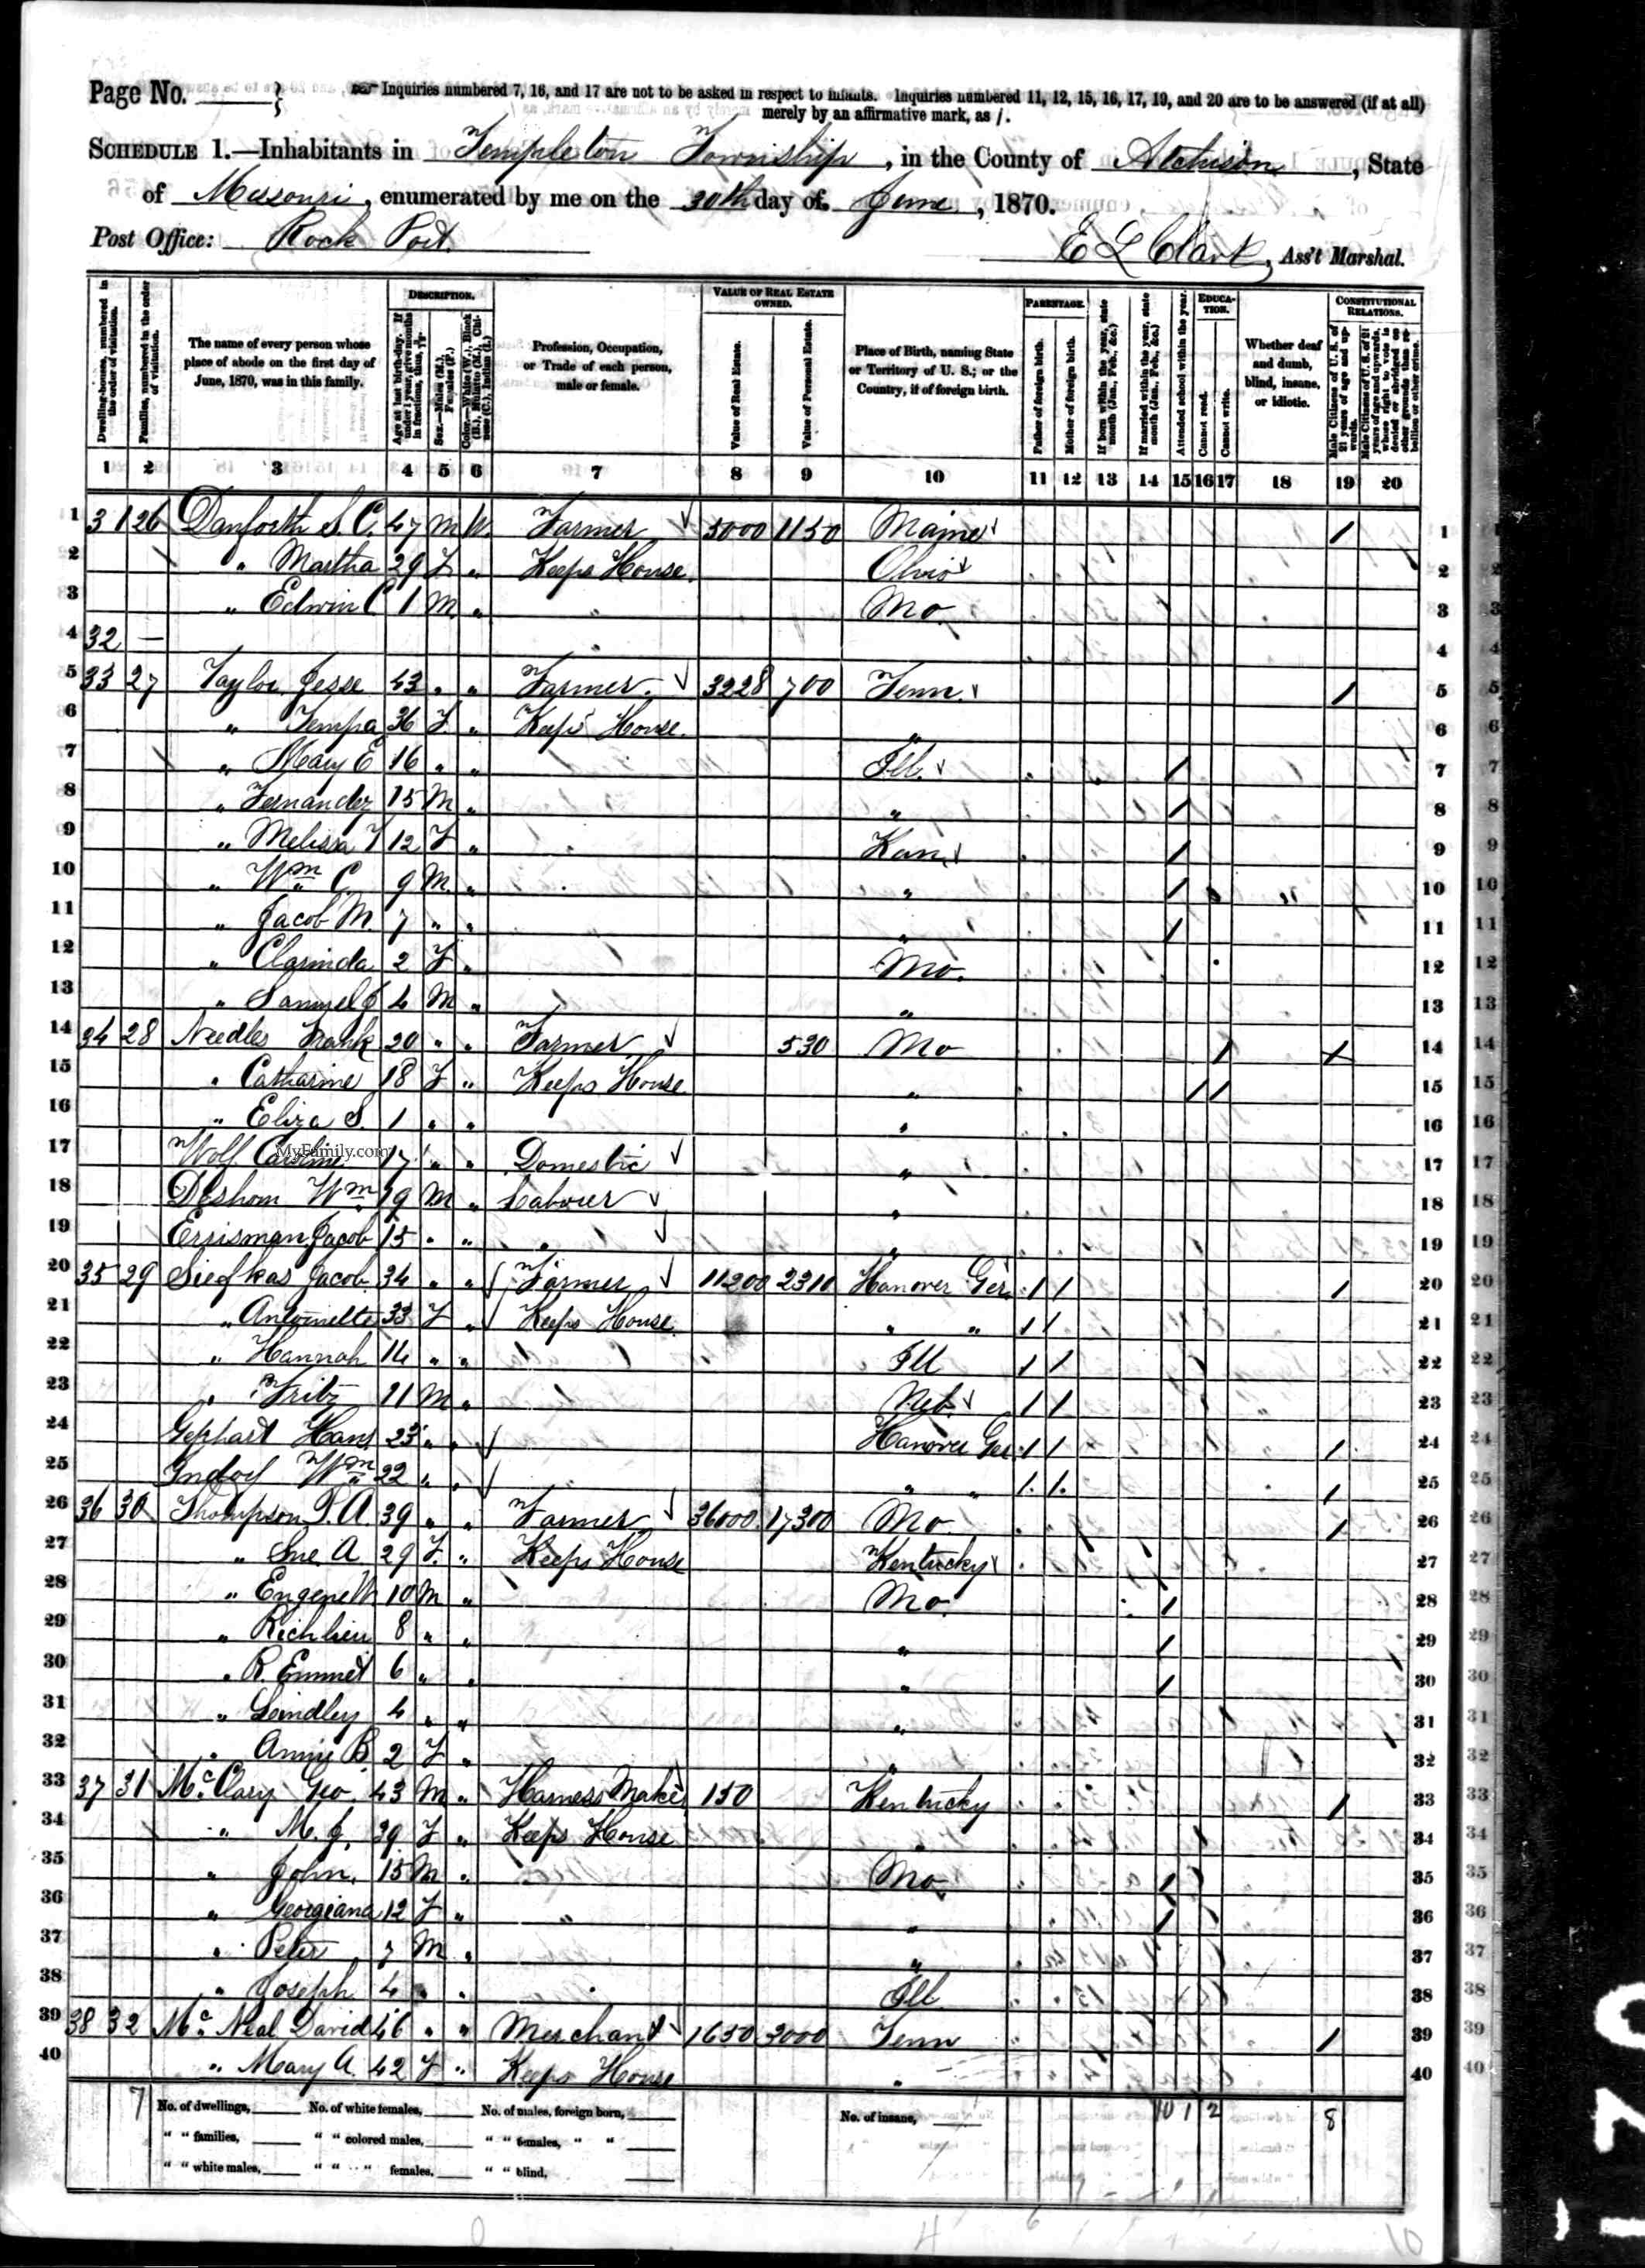 Page No.
Inquiries numbered 7, 16, and 17 are not to be asked in respect to infants. Inquiries numbered 11, 12, 15, 16, 17, 19, and 20 are to be answered (if at all)
merely by an affirmative mark, as /.
SCHEDULE 1.—Inhabitants in Templeton Township, in the County of Atchison, State
of Missouri, enumerated by me on the 30th day of June, 1870.
Post Office: Rock Port
E L Clark, Ass't Marshal.
DESCRIPTION. VALUE OF REAL ESTATE OWNED. PARENTAGE. EDUCATION. CONSTITUTIONAL RELATIONS.
Dwelling-houses, numbered in the order of visitation.
Families, numbered in the order of visitation.
The name of every person whose place of abode on the first day of June, 1870, was in this family.
Age at last birth-day. If under 1 year, give months in fractions, thus,
Sex.—Males (M.), Females (F.)
Color.—White (W.), Black (B.), Mulatto (M.), Chinese (C.), Indian (I.)
Profession, Occupation, or Trade of each person, male or female.
Value of Real Estate.
Value of Personal Estate.
Place of Birth, naming State or Territory of U. S.; or the Country, if of foreign birth.
Father of foreign birth.
Mother of foreign birth.
If born within the year, state month (Jan., Feb., &c.)
If married within the year, state month (Jan., Feb., &c.)
Attended school within the year.
Cannot read.
Cannot write.
Whether deaf and dumb, blind, insane, or idiotic.
Male Citizens of U. S. of 21 years of age and upwards.
Male Citizens of U. S. of 21 years of age and upwards, whose right to vote is denied or abridged on other grounds than rebellion or other crime.
1 2 3 4 5 6 7 8 9 10 11 12 13 14 15 16 17 18 19 20
1 31 26 Danforth S. C. 47 M W. Farmer 5000 1150 Maine / 1
2 " Martha 29 F " Keeps House. Ohio 2
3 " Edwin C 1 M " Mo. 3
4 32 — 4
5 33 27 Taylor Jesse 43 " " Farmer. 3228 700 Tenn. / 5
6 " Tempa 36 F " Keeps House. " 6
7 " Mary E 16 " " Ill. / 7
8 " Fernandez 15 M " " / 8
9 " Melissa 12 F " Kan. / 9
10 " Wm C. 9 M. " " / 10
11 " Jacob M. 7 " " " / 11
12 " Clarinda 2 F " Mo. 12
13 " Samuel J 4 M " " 13
14 34 28 Needles Frank 20 " " Farmer 530 Mo / 14
15 " Catharine 18 F " Keeps House " / / 15
16 " Eliza S. 1 " " " 16
17 Wolf Caroline 17 " " Domestic " 17
18 Wm 19 M " Labourer " 18
19 Errisman Jacob 15 " " " " 19
20 35 29 Siefkas Jacob 34 " " Farmer 11200 2310 Hanover Ger. / / / 20
21 " Antoinette 33 F " Keeps House. " " / / 21
22 " Hannah 14 " " Ill / / 22
23 " Fritz 11 M " Neb. / / 23
24 Gephart Hans 23 " " Hanover Ger. / / / 24
25 Wm 22 " " " " / / / 25
26 36 30 Thompson T. A. 39 " " Farmer 36000 17300 Mo. / 26
27 " Sue A 29 F. " Keeps House Kentucky 27
28 " Eugene W 10 M " Mo. / 28
29 " Richlieu 8 " " " / 29
30 " R. Emmet 6 " " " / 30
31 " Lindley 4 " " " 31
32 " Annie B. 2 F " " 32
33 37 31 McClary Geo. 43 M " Harness Maker 150 Kentucky / 33
34 " M. J. 39 F " Keeps House " 34
35 " John. 15 M " Mo / 35
36 " Georgiana 12 F " " / 36
37 " Peter 7 M " " 37
38 " Joseph 4 " " Ill 38
39 38 32 McNeal David 46 " " Merchant 1650 3000 Tenn / 39
40 " Mary A. 42 F " Keeps House " 40
MyFamily.com
7 No. of dwellings, No. of white females, No. of males, foreign born, No. of insane, 10 1 2 8
" " families, " " colored males, " " females, " "
" " white males, " " " females, " " blind,